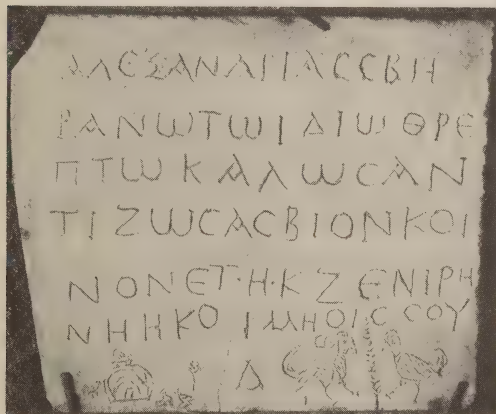 ΑΛΕΞΑΝΔΡΙΑϹϹΒΗ
ΡΑΝωΤωΙΔΙωΘΡΕ
ΠΤωΚΑΛωϹΑΝ
ΤΙΖωϹΑϹΒΙΟΝΚΟΙ
ΝΟΝΕΤ·Η·ΚΖΕΝΙΡΗ
ΝΗΗΚΟΙΜΗΟΙϹϹΟΥ
Δ